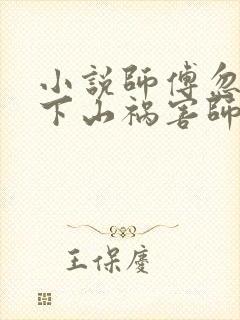 小説師傅忽
下山禍害師
王保慶